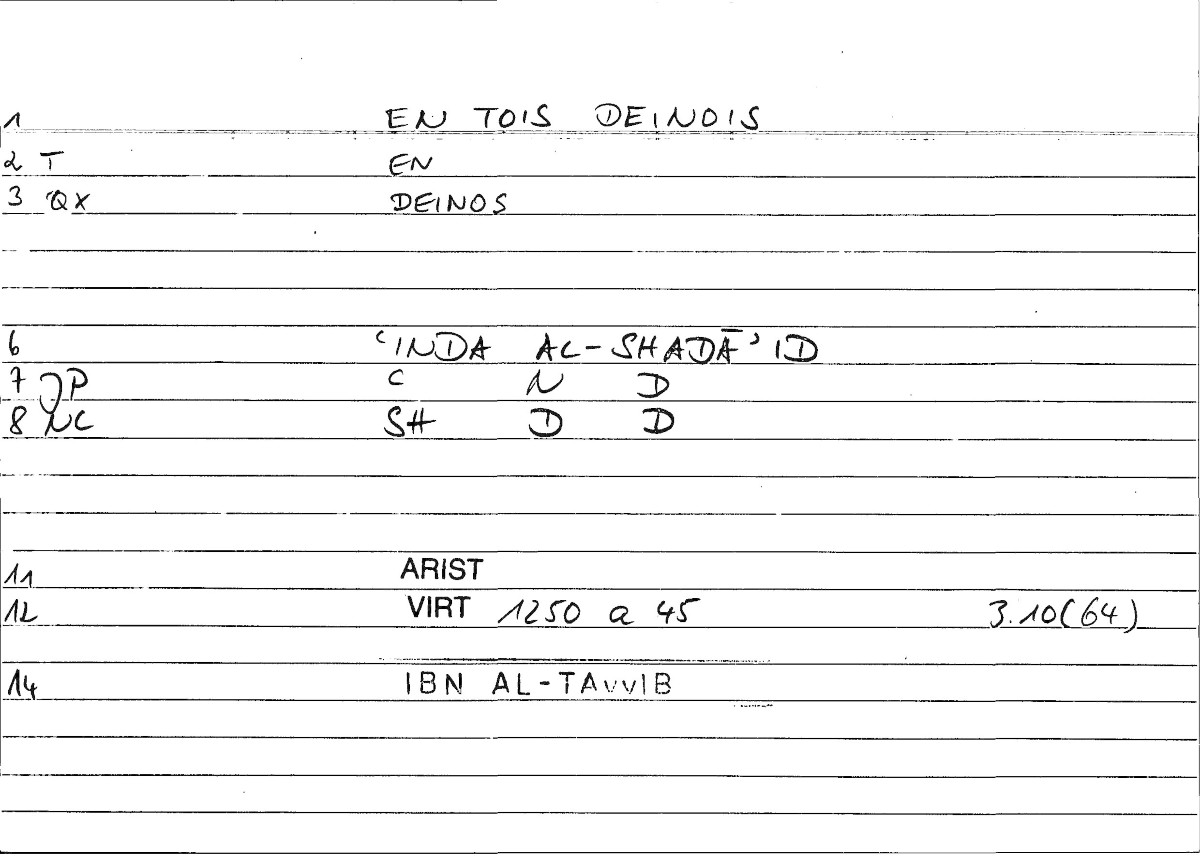 1 EN TOIS DEINOIS
2 T EN
3 QX DEINOS
6 ʿINDA AL-SHADĀʾID
7 JP C N D
8 NC SH D D
11 ARIST
12 VIRT 1250 a 45 3.10(64)
14 IBN AL-TAYYIB